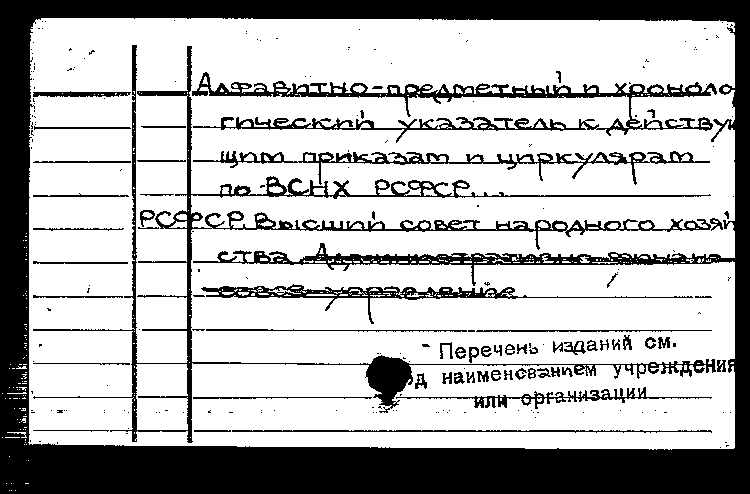 Алфавитно-предметный и хроноло
гический указатель к действую
щим приказам и циркулярам
по ВСНХ РСФСР...
РСФСР. Высший совет народного хозяй
ства. Административно-
управление.
Перечень изданий см.
од наименованием учреждения
или организации